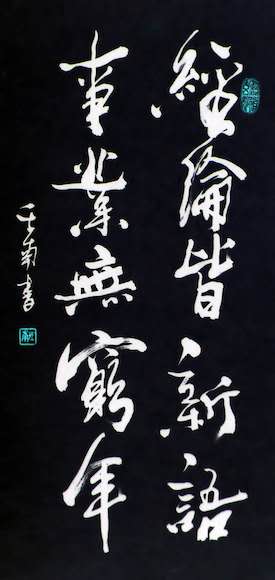 經綸皆新語
事業無窮年
壬南書